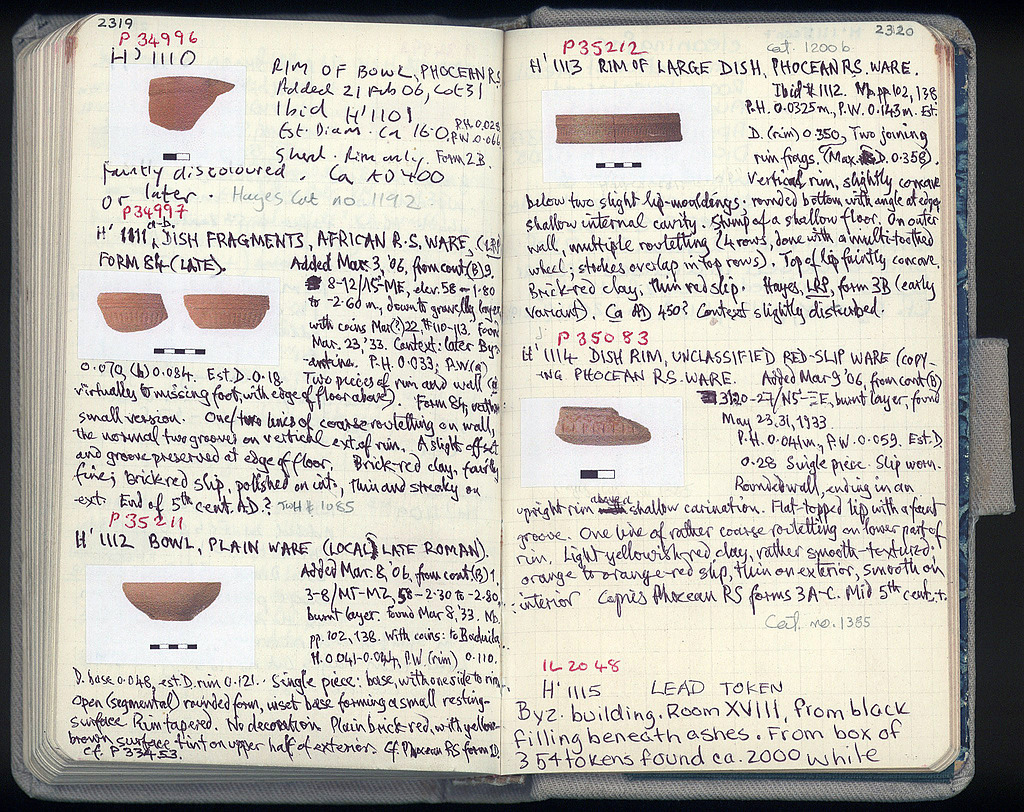 2319
P 34996
H' 1110
RIM OF BOWL, PHOCEAN RS.
Added 21 Feb 06, Lot 31
Ibid H' 1101
Est. Diam. ca 16.0 P.H. 0.028
P.W. 0.066
Sherd. Rim only. Form 2B.
Faintly discoloured. Ca AD 400
or later Hayes Cat no. 1192.
P34997
a-b.
H' 1111, DISH FRAGMENTS, AFRICAN R.S. WARE, (LRP)
FORM 84 (LATE). Added Mar. 3, '06, from cont (B) 9.
8-12/15-ME, elev. 58 - 1.80
to -2.60 m, down to gravelly layer
with coins Mar(?) 22, #110-113. Found
Mar. 23, '33. Context: later Byz-
antine. P.H. 0.033, P.W. (a)
0.070, (b) 0.084. Est. D. 0.18. Two pieces of rim and wall (a
virtually to missing foot, with edge of floor above). Form 84, rather
small version. One/two lines of coarse rouletting on wall,
the normal two grooves on vertical ext of rim. A slight offset
and groove preserved at edge of floor. Brick-red clay, fairly
fine; brick red slip, polished on int., thin and streaky on
ext. End of 5th cent. AD? JWH # 1085
P35211
H' 1112 BOWL, PLAIN WARE (LOCAL) LATE ROMAN).
Added Mar. 8, '06, from cont (B) 1.
3-8/MS-MZ, 58 - 2.30 to - 2.80,
burnt layer. Found Mar 8, '33. Nb.
pp. 102, 138. With coins: to Baduila
H. 0.041-0.044, P.W. (rim) 0.110.
D. base 0.048, est. D. rim 0.121. Single piece: base, with one side to rim
open (segmental) rounded form, inset base forming a small resting-
surface. Rim tapered. No decoration. Plain brick-red, with yellow-
brown surface tint on upper half of exterior. Cf. Phocean RS form 1D.
cf. P 33453.
2320
P35212 Cat. 1200 b.
H' 1113 RIM OF LARGE DISH, PHOCEAN RS. WARE.
Ibid # 1112. Nb pp. 102, 138
P.H. 0.0325 m, P.W. 0.143 m. Est.
D. (rim) 0.350, Two joining
rim frags. (Max. D. 0.358).
Vertical rim, slightly concave
below two slight lip-mouldings; rounded bottom with angle at edge,
shallow internal cavity. Stump of a shallow floor. On outer
wall, multiple rouletting (4 rows, done with a multi-toothed
wheel; strokes overlap in top rows). Top of lip faintly concave.
Brick-red clay; thin red slip. Hayes, LRP, form 3B (early
variant). Ca AD 450? Context slightly disturbed.
P35083
H' 1114 DISH RIM, UNCLASSIFIED RED-SLIP WARE (COPY-
ING PHOCEAN RS. WARE. Added Mar 9 '06, from cont (B)
3120-27/NS-ΞE, burnt layer, found
May 23.31, 1933
P.H. 0.041 m., P.W. 0.059. Est. D.
0.28 Single piece. Slip worn.
Rounded wall, ending in an
upright rim above a shallow carination. Flat-topped lip with a faint
groove. One line of rather coarse rouletting on lower part of
rim. Light yellowish-red clay, rather smooth-textured;
orange to orange-red slip, thin on exterior, smooth on
interior Copies Phocean RS forms 3A-C. Mid 5th cent.+
Cat. no. 1385
IL 2048
H' 1115 LEAD TOKEN
Byz. building. Room XVIII, from black
filling beneath ashes. From box of
354 tokens found ca. 2000 white